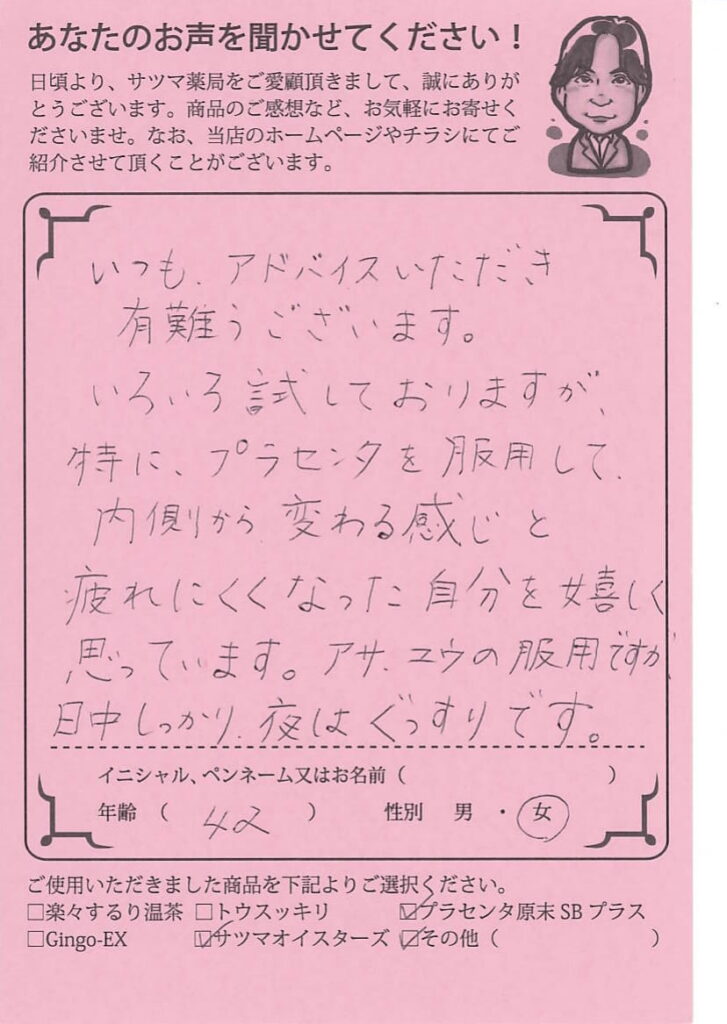 あなたのお声を聞かせてください！
日頃より、サツマ薬局をご愛顧頂きまして、誠にありが
とうございます。商品のご感想など、お気軽にお寄せく
ださいませ。なお、当店のホームページやチラシにてご
紹介させて頂くことがございます。
いつも、アドバイスいただき
有難うございます。
いろいろ試しておりますが、
特に、プラセンタを服用して、
内側から変わる感じと
疲れにくくなった自分を嬉しく
思っています。アサ、ユウの服用ですが、
日中しっかり、夜はぐっすりです。
イニシャル、ペンネーム又はお名前（　　　）
年齢（ 42 ）　性別　男・女
ご使用いただきました商品を下記よりご選択ください。
□楽々するり温茶 □トウスッキリ ☑プラセンタ原末SBプラス
□Gingo-EX ☑サツマオイスターズ ☑その他（　　　）